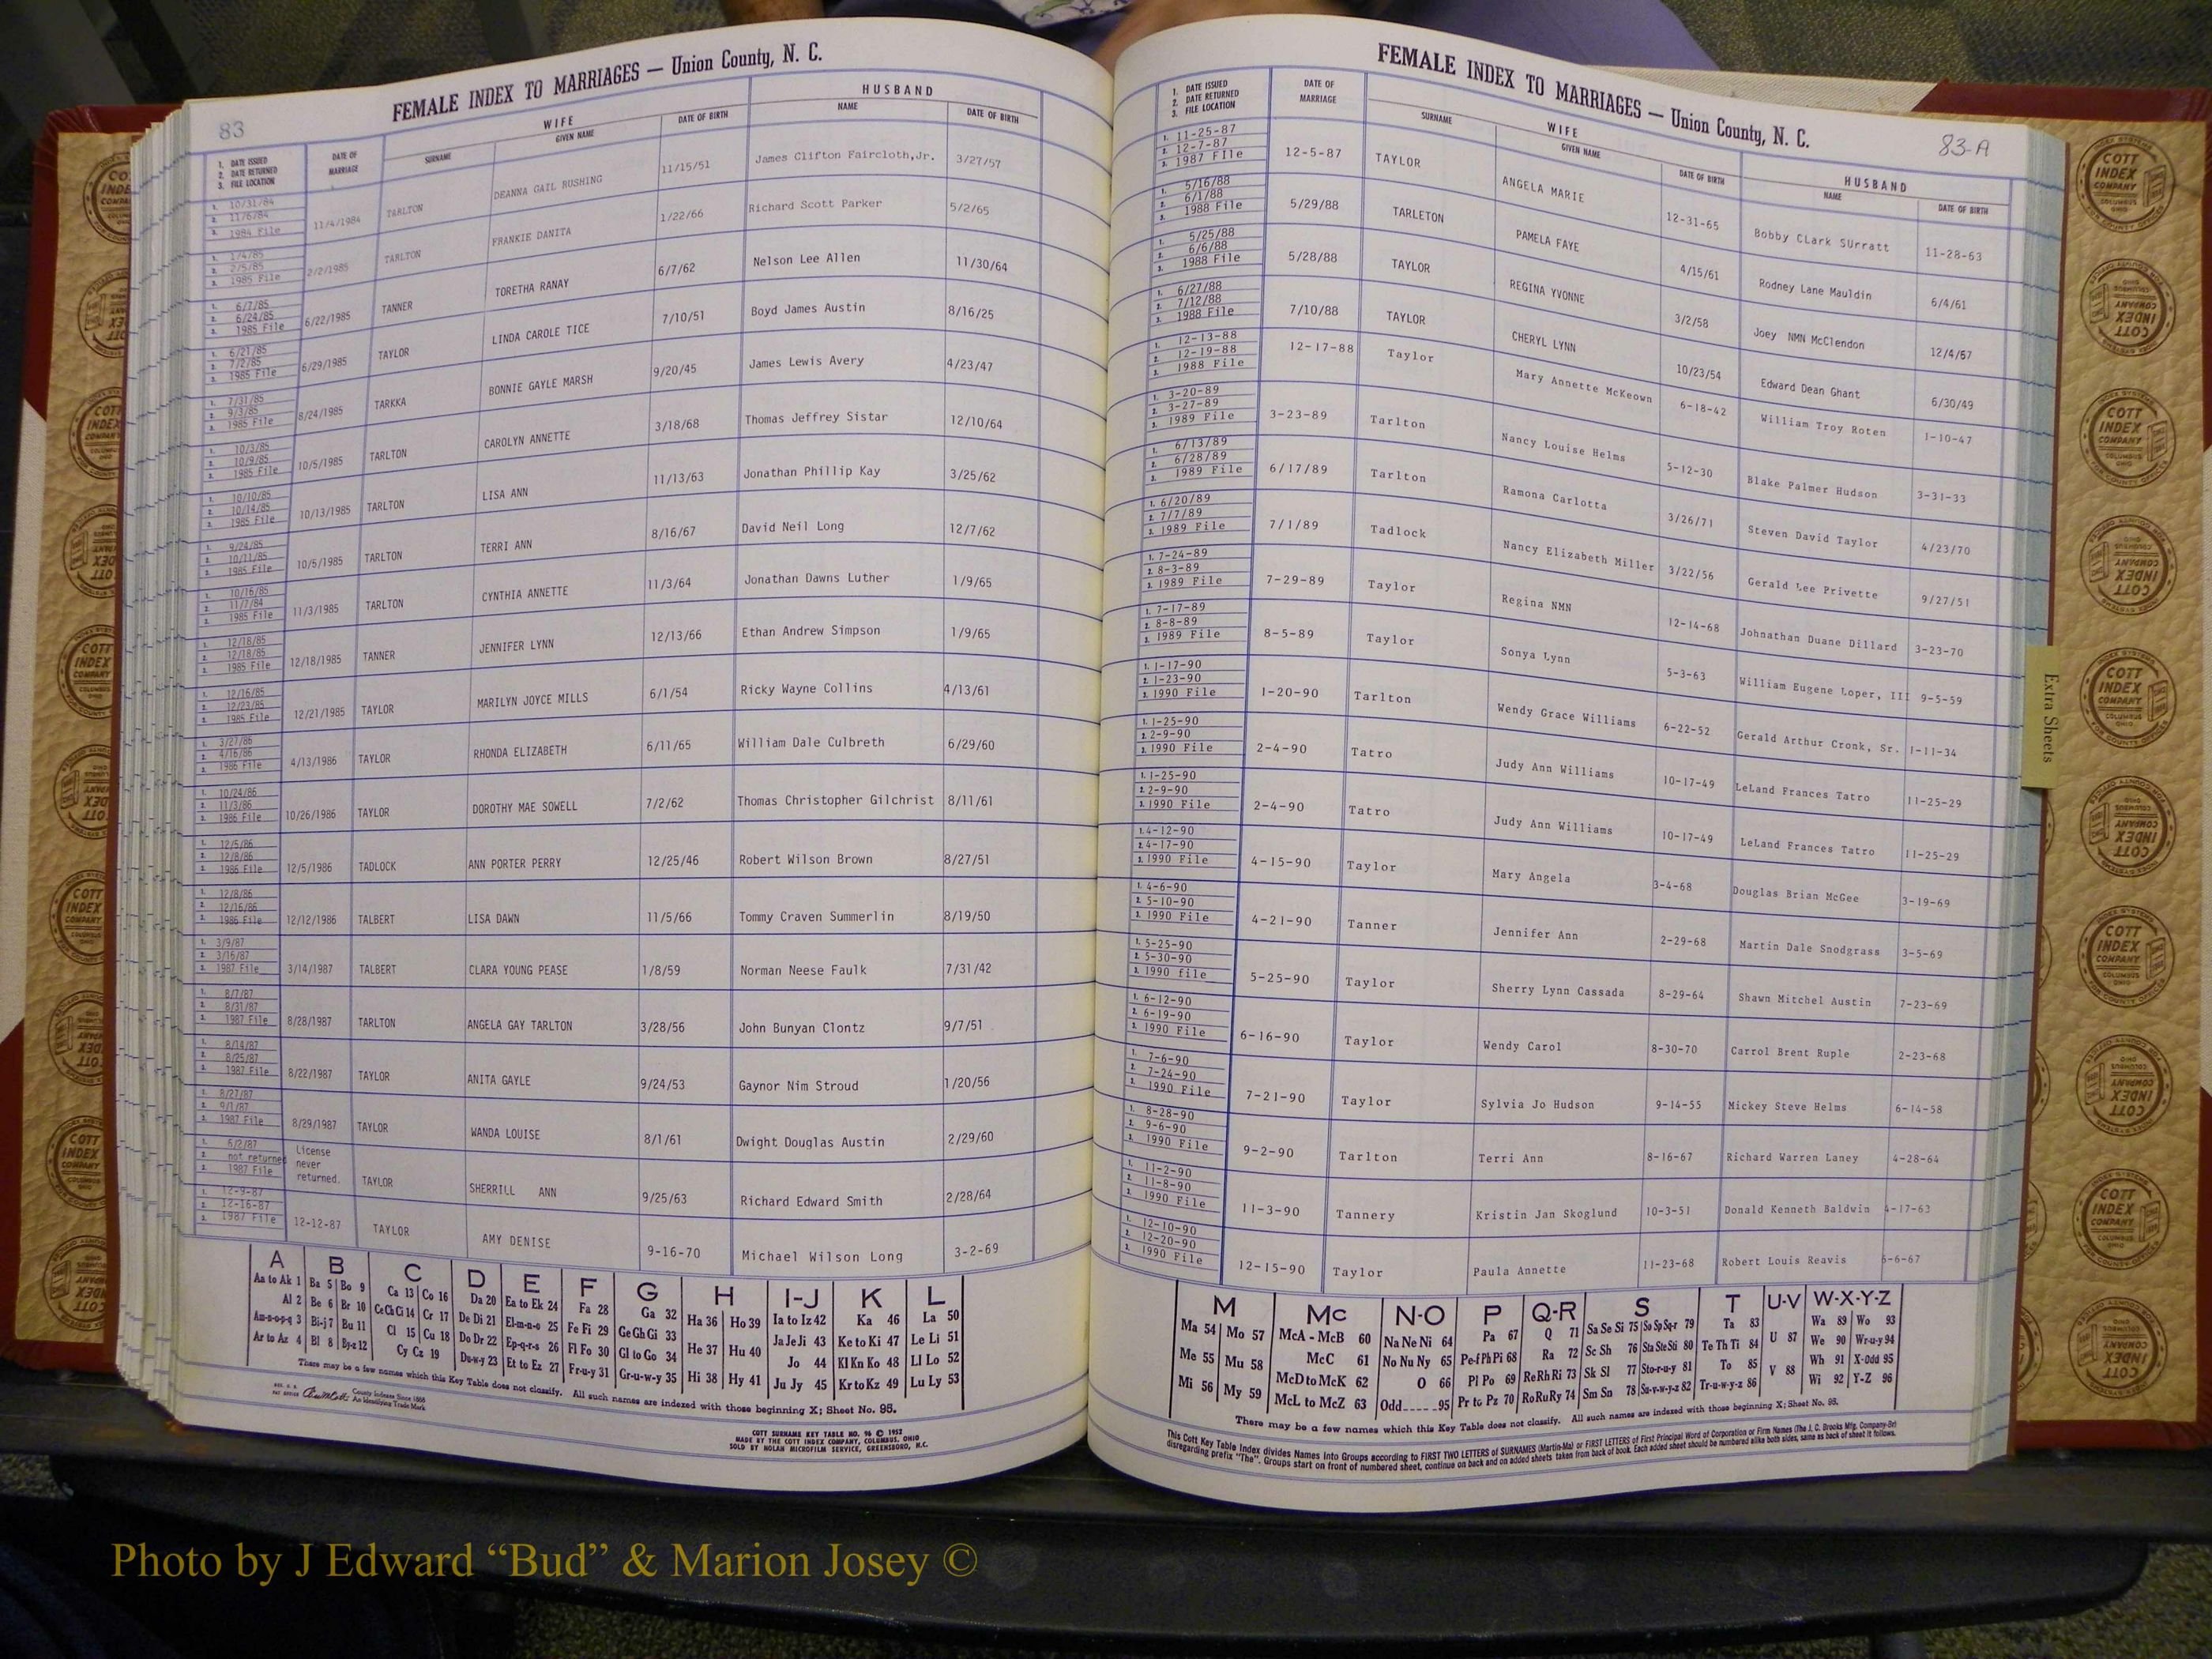 83
FEMALE INDEX TO MARRIAGES — Union County, N. C.
1. DATE ISSUED
2. DATE RETURNED
3. FILE LOCATION
DATE OF MARRIAGE
WIFE
SURNAME GIVEN NAME DATE OF BIRTH
HUSBAND
NAME DATE OF BIRTH
1. 10/31/84 2. 11/6/84 3. 1984 File 11/4/1984 TARLTON DEANNA GAIL RUSHING 11/15/51 James Clifton Faircloth,Jr. 3/27/57
1. 1/4/85 2. 2/5/85 3. 1985 File 2/2/1985 TARLTON FRANKIE DANITA 1/22/66 Richard Scott Parker 5/2/65
1. 6/7/85 2. 6/24/85 3. 1985 File 6/22/1985 TANNER TORETHA RANAY 6/7/62 Nelson Lee Allen 11/30/64
1. 6/21/85 2. 7/2/85 3. 1985 File 6/29/1985 TAYLOR LINDA CAROLE TICE 7/10/51 Boyd James Austin 8/16/25
1. 7/31/85 2. 9/3/85 3. 1985 File 8/24/1985 TARKKA BONNIE GAYLE MARSH 9/20/45 James Lewis Avery 4/23/47
1. 10/3/85 2. 10/9/85 3. 1985 File 10/5/1985 TARLTON CAROLYN ANNETTE 3/18/68 Thomas Jeffrey Sistar 12/10/64
1. 10/10/85 2. 10/14/85 3. 1985 File 10/13/1985 TARLTON LISA ANN 11/13/63 Jonathan Phillip Kay 3/25/62
1. 9/24/85 2. 10/11/85 3. 1985 File 10/5/1985 TARLTON TERRI ANN 8/16/67 David Neil Long 12/7/62
1. 10/16/85 2. 11/7/84 3. 1985 File 11/3/1985 TARLTON CYNTHIA ANNETTE 11/3/64 Jonathan Dawns Luther 1/9/65
1. 12/18/85 2. 12/18/85 3. 1985 File 12/18/1985 TANNER JENNIFER LYNN 12/13/66 Ethan Andrew Simpson 1/9/65
1. 12/16/85 2. 12/23/85 3. 1985 File 12/21/1985 TAYLOR MARILYN JOYCE MILLS 6/1/54 Ricky Wayne Collins 4/13/61
1. 3/27/86 2. 4/16/86 3. 1986 File 4/13/1986 TAYLOR RHONDA ELIZABETH 6/11/65 William Dale Culbreth 6/29/60
1. 10/24/86 2. 11/3/86 3. 1986 File 10/26/1986 TAYLOR DOROTHY MAE SOWELL 7/2/62 Thomas Christopher Gilchrist 8/11/61
1. 12/5/86 2. 12/8/86 3. 1986 File 12/5/1986 TADLOCK ANN PORTER PERRY 12/25/46 Robert Wilson Brown 8/27/51
1. 12/8/86 2. 12/16/86 3. 1986 File 12/12/1986 TALBERT LISA DAWN 11/5/66 Tommy Craven Summerlin 8/19/50
1. 3/9/87 2. 3/16/87 3. 1987 File 3/14/1987 TALBERT CLARA YOUNG PEASE 1/8/59 Norman Neese Faulk 7/31/42
1. 8/7/87 2. 8/31/87 3. 1987 File 8/28/1987 TARLTON ANGELA GAY TARLTON 3/28/56 John Bunyan Clontz 9/7/51
1. 8/14/87 2. 8/25/87 3. 1987 File 8/22/1987 TAYLOR ANITA GAYLE 9/24/53 Gaynor Nim Stroud 1/20/56
1. 8/27/87 2. 9/1/87 3. 1987 File 8/29/1987 TAYLOR WANDA LOUISE 8/1/61 Dwight Douglas Austin 2/29/60
1. 6/2/87 2. not returned 3. 1987 File License never returned. TAYLOR SHERRILL ANN 9/25/63 Richard Edward Smith 2/28/64
1. 12-9-87 2. 12-16-87 3. 1987 File 12-12-87 TAYLOR AMY DENISE 9-16-70 Michael Wilson Long 3-2-69
A B C D E F G H I-J K L
Aa to Ak 1 Ba 5 Bo 9 Ca 13 Co 16 Da 20 Ea to Ek 24 Fa 28 Ga 32 Ha 36 Ho 39 Ia to Iz 42 Ka 46 La 50
Al 2 Be 6 Br 10 Ce Ch Ci 14 Cr 17 De Di 21 El-m-n-o 25 Fe Fi 29 Ge Gh Gi 33 He 37 Hu 40 Ja Je Ji 43 Ke to Ki 47 Le Li 51
Am-n-o-p-q 3 Bi-j 7 Bu 11 Cl 15 Cu 18 Do Dr 22 Ep-q-r-s 26 Fl Fo 30 Gl to Go 34 Hi 38 Hy 41 Jo 44 Kl Kn Ko 48 Ll Lo 52
Ar to Az 4 Bl 8 By-z 12 Cy Cz 19 Du-w-y 23 Et to Ez 27 Fr-u-y 31 Gr-u-w-y 35 Ju Jy 45 Kr to Kz 49 Lu Ly 53
There may be a few names which this Key Table does not classify. All such names are indexed with those beginning X; Sheet No. 95.
County Indexes Since 1888
An Identifying Trade Mark
COTT SURNAME KEY TABLE NO. 96 © 1952
MADE BY THE COTT INDEX COMPANY, COLUMBUS, OHIO
SOLD BY NOLAN MICROFILM SERVICE, GREENSBORO, N.C.
FEMALE INDEX TO MARRIAGES — Union County, N. C.
83-A
1. DATE ISSUED
2. DATE RETURNED
3. FILE LOCATION
DATE OF MARRIAGE
WIFE
SURNAME GIVEN NAME DATE OF BIRTH
HUSBAND
NAME DATE OF BIRTH
1. 11-25-87 2. 12-7-87 3. 1987 FIle 12-5-87 TAYLOR ANGELA MARIE 12-31-65 Bobby CLark SUrratt 11-28-63
1. 5/16/88 2. 6/1/88 3. 1988 File 5/29/88 TARLETON PAMELA FAYE 4/15/61 Rodney Lane Mauldin 6/4/61
1. 5/25/88 2. 6/6/88 3. 1988 File 5/28/88 TAYLOR REGINA YVONNE 3/2/58 Joey NMN McClendon 12/4/67
1. 6/27/88 2. 7/12/88 3. 1988 File 7/10/88 TAYLOR CHERYL LYNN 10/23/54 Edward Dean Ghant 6/30/49
1. 12-13-88 2. 12-19-88 3. 1988 File 12-17-88 Taylor Mary Annette McKeown 6-18-42 William Troy Roten 1-10-47
1. 3-20-89 2. 3-27-89 3. 1989 File 3-23-89 Tarlton Nancy Louise Helms 5-12-30 Blake Palmer Hudson 3-31-33
1. 6/13/89 2. 6/28/89 3. 1989 File 6/17/89 Tarlton Ramona Carlotta 3/26/71 Steven David Taylor 4/23/70
1. 6/20/89 2. 7/7/89 3. 1989 File 7/1/89 Tadlock Nancy Elizabeth Miller 3/22/56 Gerald Lee Privette 9/27/51
1. 7-24-89 2. 8-3-89 3. 1989 File 7-29-89 Taylor Regina NMN 12-14-68 Johnathan Duane Dillard 3-23-70
1. 7-17-89 2. 8-8-89 3. 1989 File 8-5-89 Taylor Sonya Lynn 5-3-63 William Eugene Loper, III 9-5-59
1. 1-17-90 2. 1-23-90 3. 1990 File 1-20-90 Tarlton Wendy Grace Williams 6-22-52 Gerald Arthur Cronk, Sr. 1-11-34
1. 1-25-90 2. 2-9-90 3. 1990 File 2-4-90 Tatro Judy Ann Williams 10-17-49 LeLand Frances Tatro 11-25-29
1. 1-25-90 2. 2-9-90 3. 1990 File 2-4-90 Tatro Judy Ann Williams 10-17-49 LeLand Frances Tatro 11-25-29
1. 4-12-90 2. 4-17-90 3. 1990 File 4-15-90 Taylor Mary Angela 3-4-68 Douglas Brian McGee 3-19-69
1. 4-6-90 2. 5-10-90 3. 1990 File 4-21-90 Tanner Jennifer Ann 2-29-68 Martin Dale Snodgrass 3-5-69
1. 5-25-90 2. 5-30-90 3. 1990 file 5-25-90 Taylor Sherry Lynn Cassada 8-29-64 Shawn Mitchel Austin 7-23-69
1. 6-12-90 2. 6-19-90 3. 1990 File 6-16-90 Taylor Wendy Carol 8-30-70 Carrol Brent Ruple 2-23-68
1. 7-6-90 2. 7-24-90 3. 1990 File 7-21-90 Taylor Sylvia Jo Hudson 9-14-55 Mickey Steve Helms 6-14-58
1. 8-28-90 2. 9-6-90 3. 1990 File 9-2-90 Tarlton Terri Ann 8-16-67 Richard Warren Laney 4-28-64
1. 11-2-90 2. 11-8-90 3. 1990 File 11-3-90 Tannery Kristin Jan Skoglund 10-3-51 Donald Kenneth Baldwin 4-17-63
1. 12-10-90 2. 12-20-90 3. 1990 File 12-15-90 Taylor Paula Annette 11-23-68 Robert Louis Reavis 6-6-67
M Mc N-O P Q-R S T U-V W-X-Y-Z
Ma 54 Mo 57 McA - McB 60 Na Ne Ni 64 Pa 67 Q 71 Sa Se Si 75 So Sp Sq-r 79 Ta 83 U 87 Wa 89 Wo 93
Me 55 Mu 58 McC 61 No Nu Ny 65 Pe-f Ph Pi 68 Ra 72 Sc Sh 76 Sta Ste Sti 80 Te Th Ti 84 V 88 We 90 Wr-u-y 94
Mi 56 My 59 McD to McK 62 O 66 Pl Po 69 Re Rh Ri 73 Sk Sl 77 Sto-r-u-y 81 To 85 Wh 91 X-Odd 95
McL to McZ 63 Odd-----95 Pr to Pz 70 Ro Ru Ry 74 Sm Sn 78 Su-v-w-y-z 82 Tr-u-w-y-z 86 Wi 92 Y-Z 96
There may be a few names which this Key Table does not classify. All such names are indexed with those beginning X; Sheet No. 95.
This Cott Key Table Index divides Names into Groups according to FIRST TWO LETTERS of SURNAMES (Martin-Ma) or FIRST LETTERS of First Principal Word of Corporation or Firm Names (The J. C. Brooks Mfg. Company-Br)
disregarding prefix "The". Groups start on front of numbered sheet, continue on back and on added sheets taken from back of book. Each added sheet should be numbered alike both sides, same as back of sheet it follows.
Extra Sheets
COTT INDEX COMPANY
COLUMBUS OHIO
Photo by J Edward “Bud” & Marion Josey ©